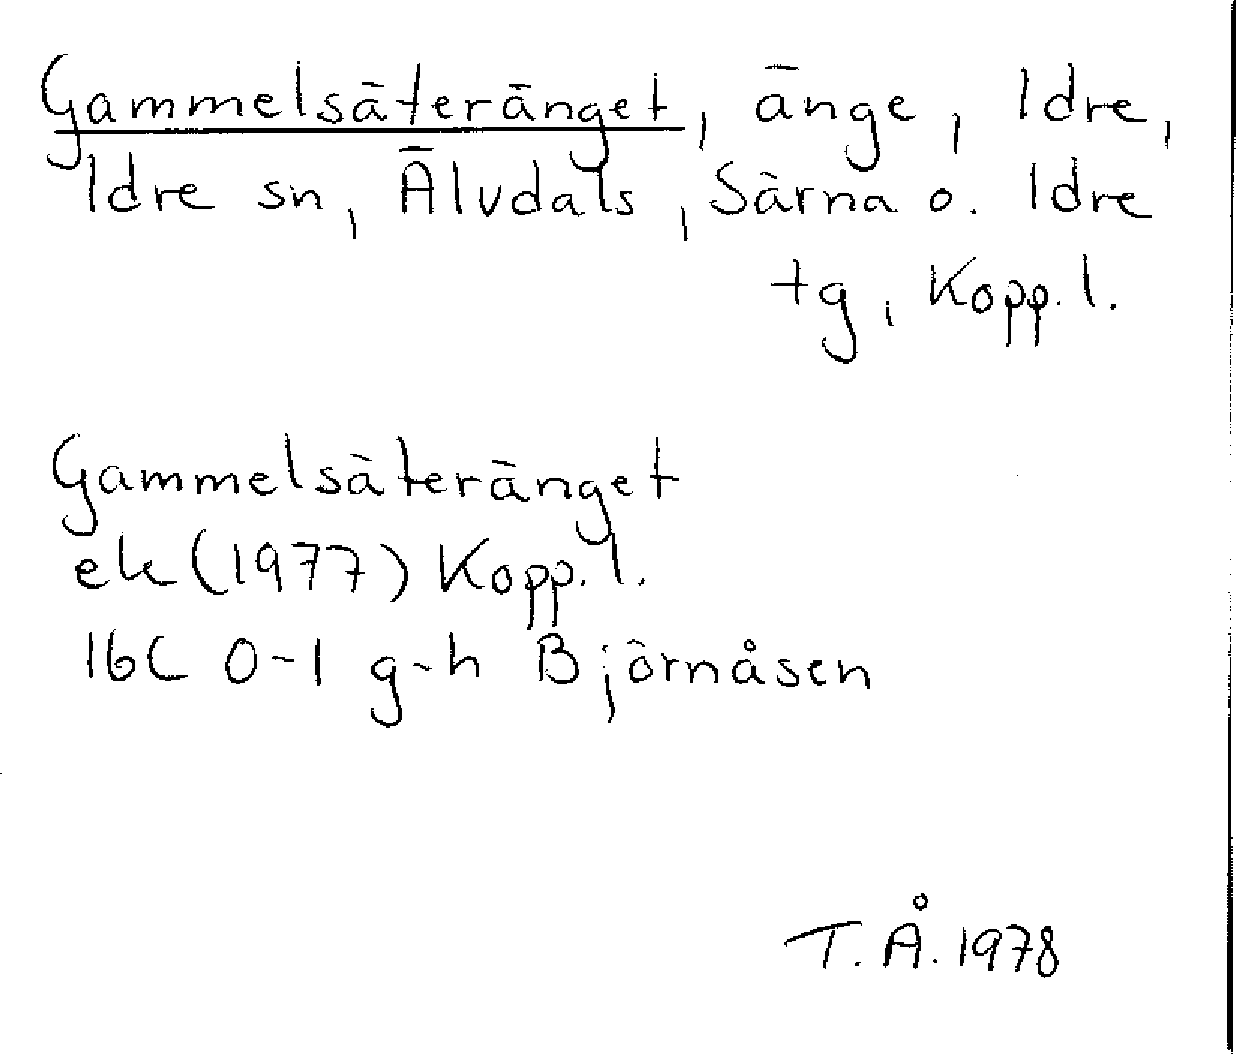 Gammelsäteränget, änge, Idre,
Idre sn, Älvdals, Särna o. Idre
tg, Kopp. l.
Gammelsäteränget
ek (1977) Kopp. l.
16C 0-1 g-h Björnåsen
T. Å. 1978